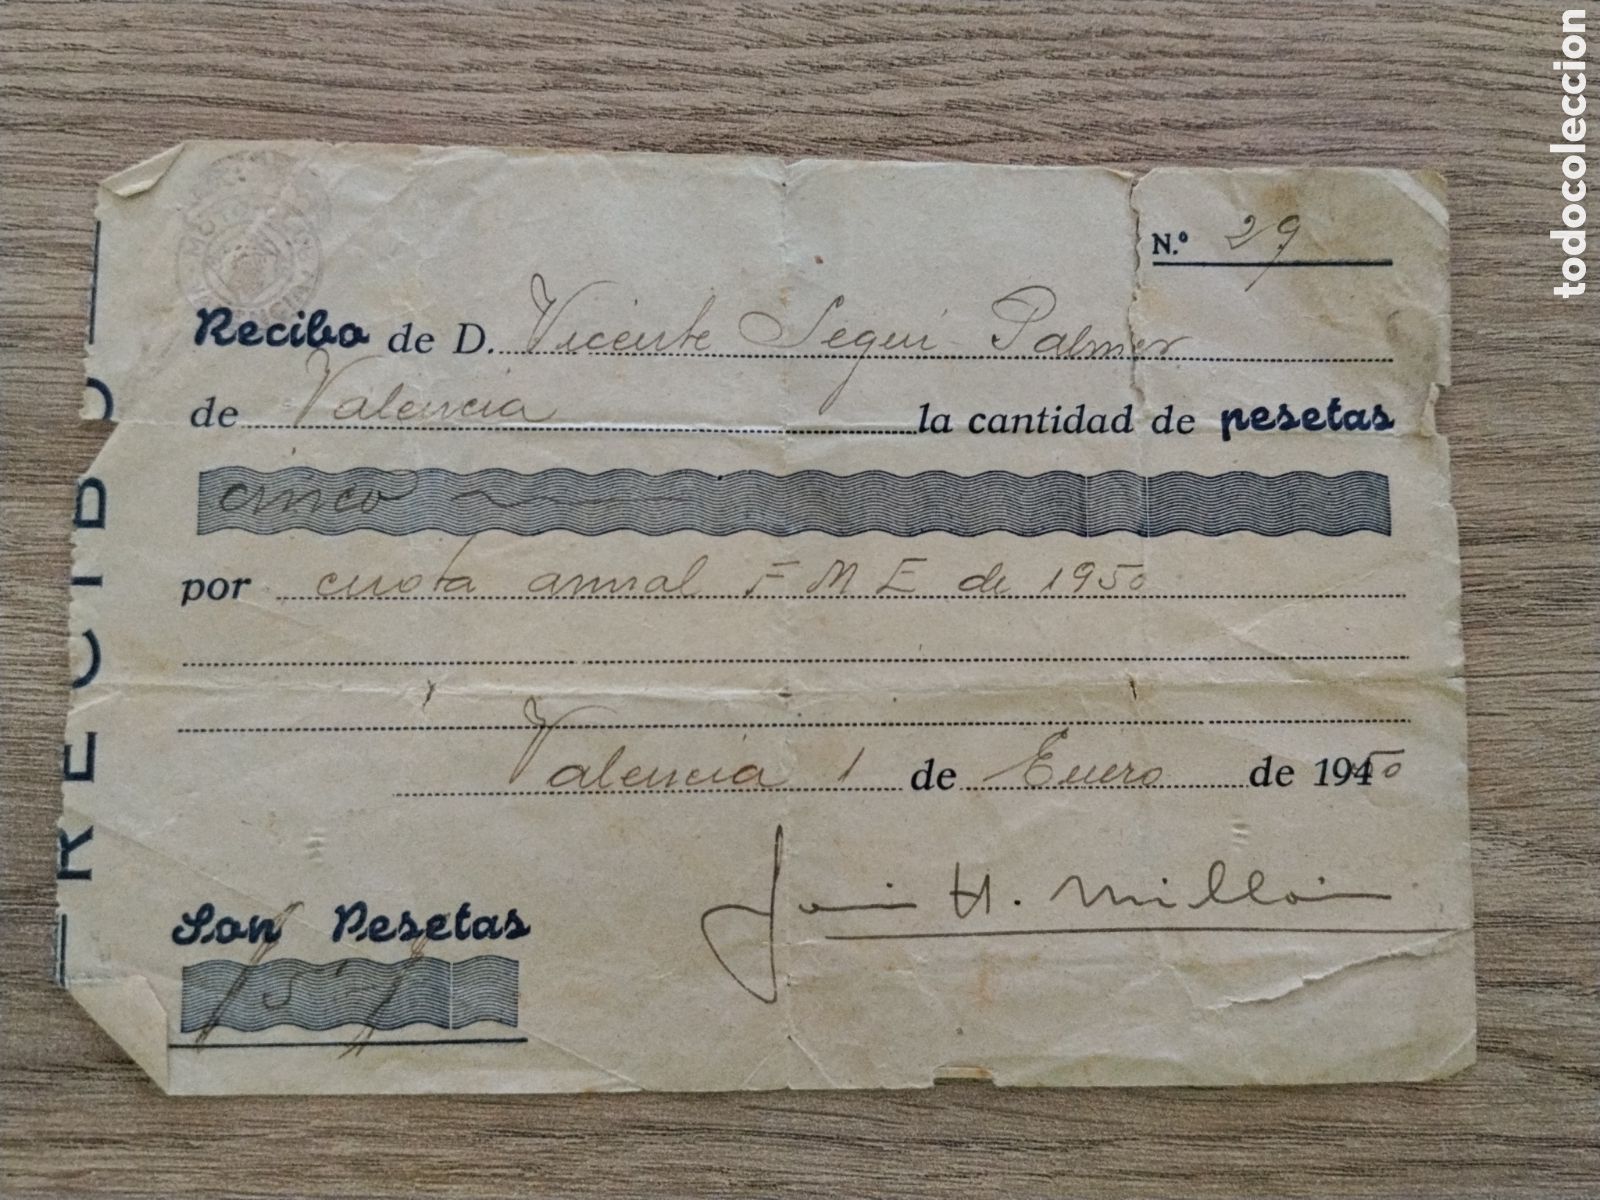 todocoleccion
N.º 29
Recibo de D. Vicente Segui Palmer
de Valencia la cantidad de pesetas
cinco
por cuota anual F M E de 1950
Valencia 1 de Enero de 1950
H. Millán
Son Pesetas
5
RECIBO